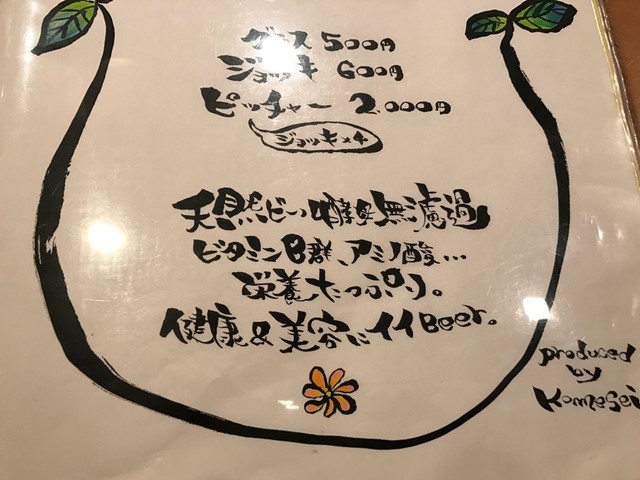 グラス 500円
ジョッキ 600円
ピッチャー 2.000円
ジョッキ×4
天然ビール酵母無濾過
ビタミンB群、アミノ酸…
栄養たっぷり。
健康&美容にイイBeer。
produced
by
Komesei